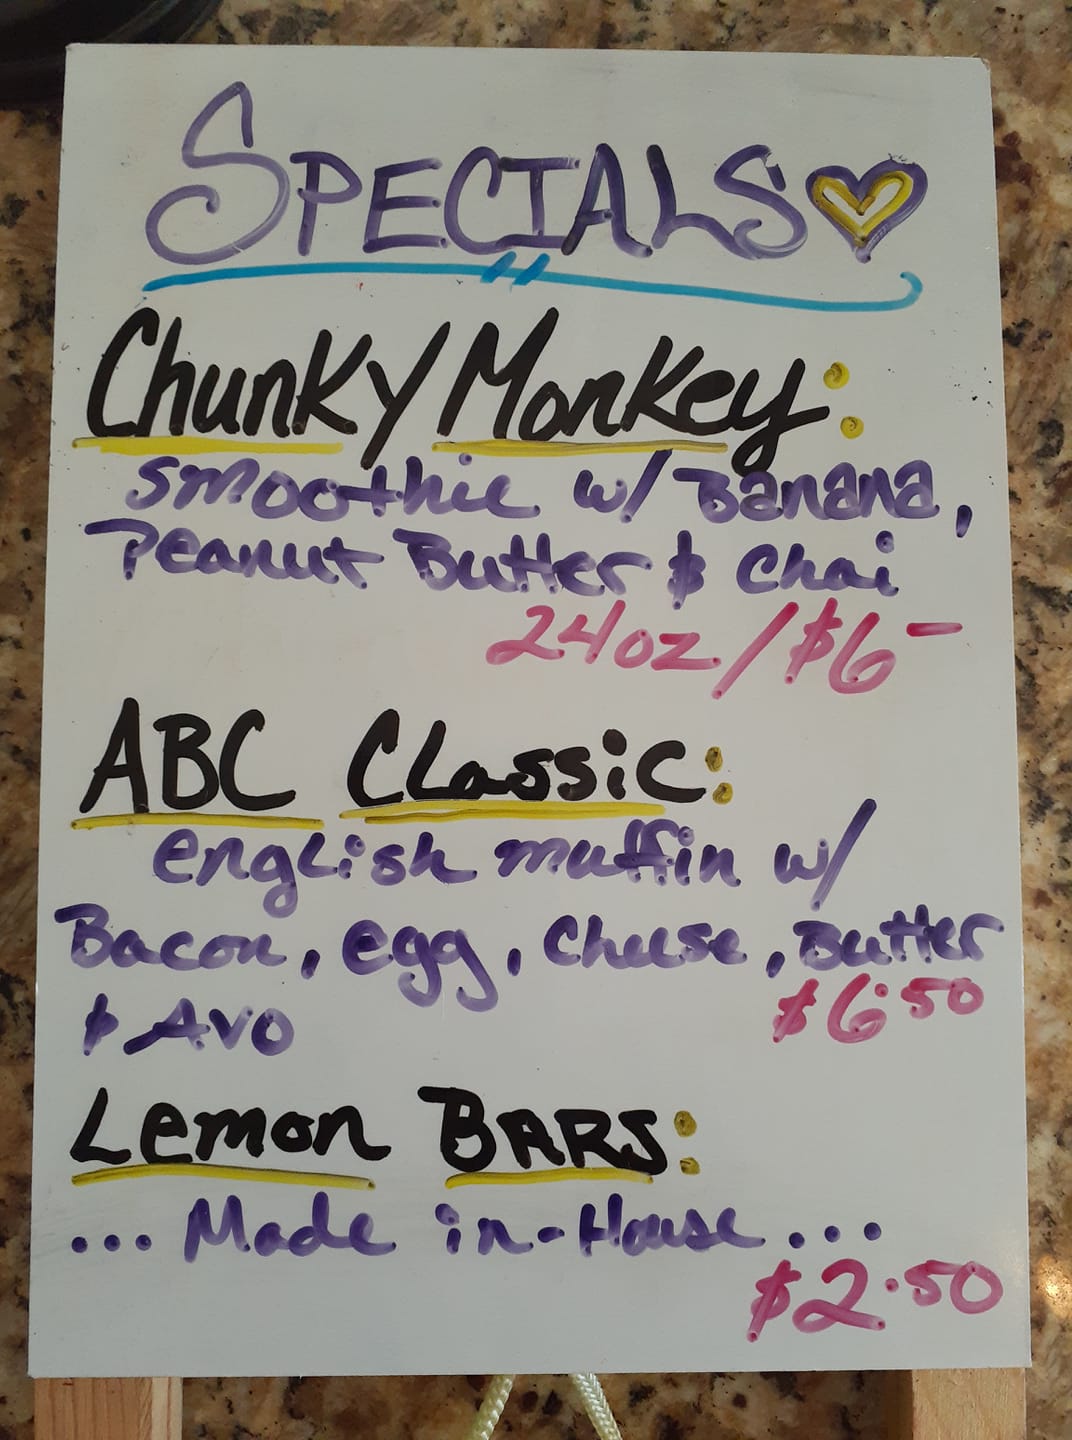 SPECIALS
Chunky Monkey:
smoothie w/ Banana,
Peanut Butter & Chai
24oz/$6-
ABC Classic:
english muffin w/
Bacon, egg, Cheese, Butter
& Avo
$6.50
Lemon BARS:
... Made in-House ...
$2.50